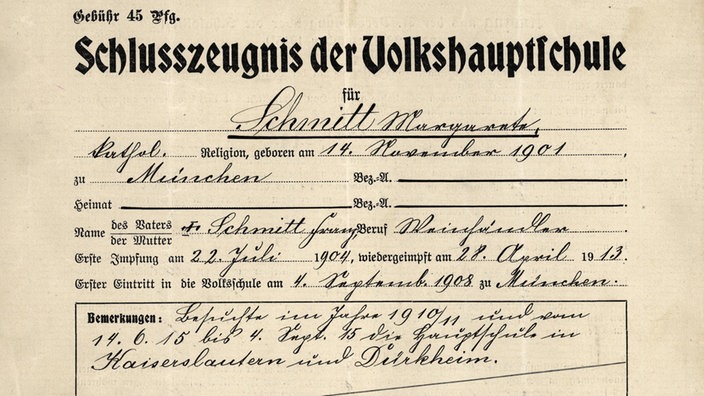 Gebühr 45 Pfg.
Schlusszeugnis der Volkshauptschule
für
Schmitt Margarete,
kathol. Religion, geboren am 14. November 1901
zu München Bez.-A.
Heimat Bez.-A.
Name des Vaters / der Mutter Schmitt Franz, Beruf Weinhändler
Erste Impfung am 22. Juli 1904, wiedergeimpft am 28. April 1913.
Erster Eintritt in die Volksschule am 4. Septemb. 1908 zu München.
Bemerkungen: Besuchte im Jahre 1910/11 und vom
14.6.15 bis 4. Sept. 15 die Hauptschule in
Kaiserslautern und Dürkheim.